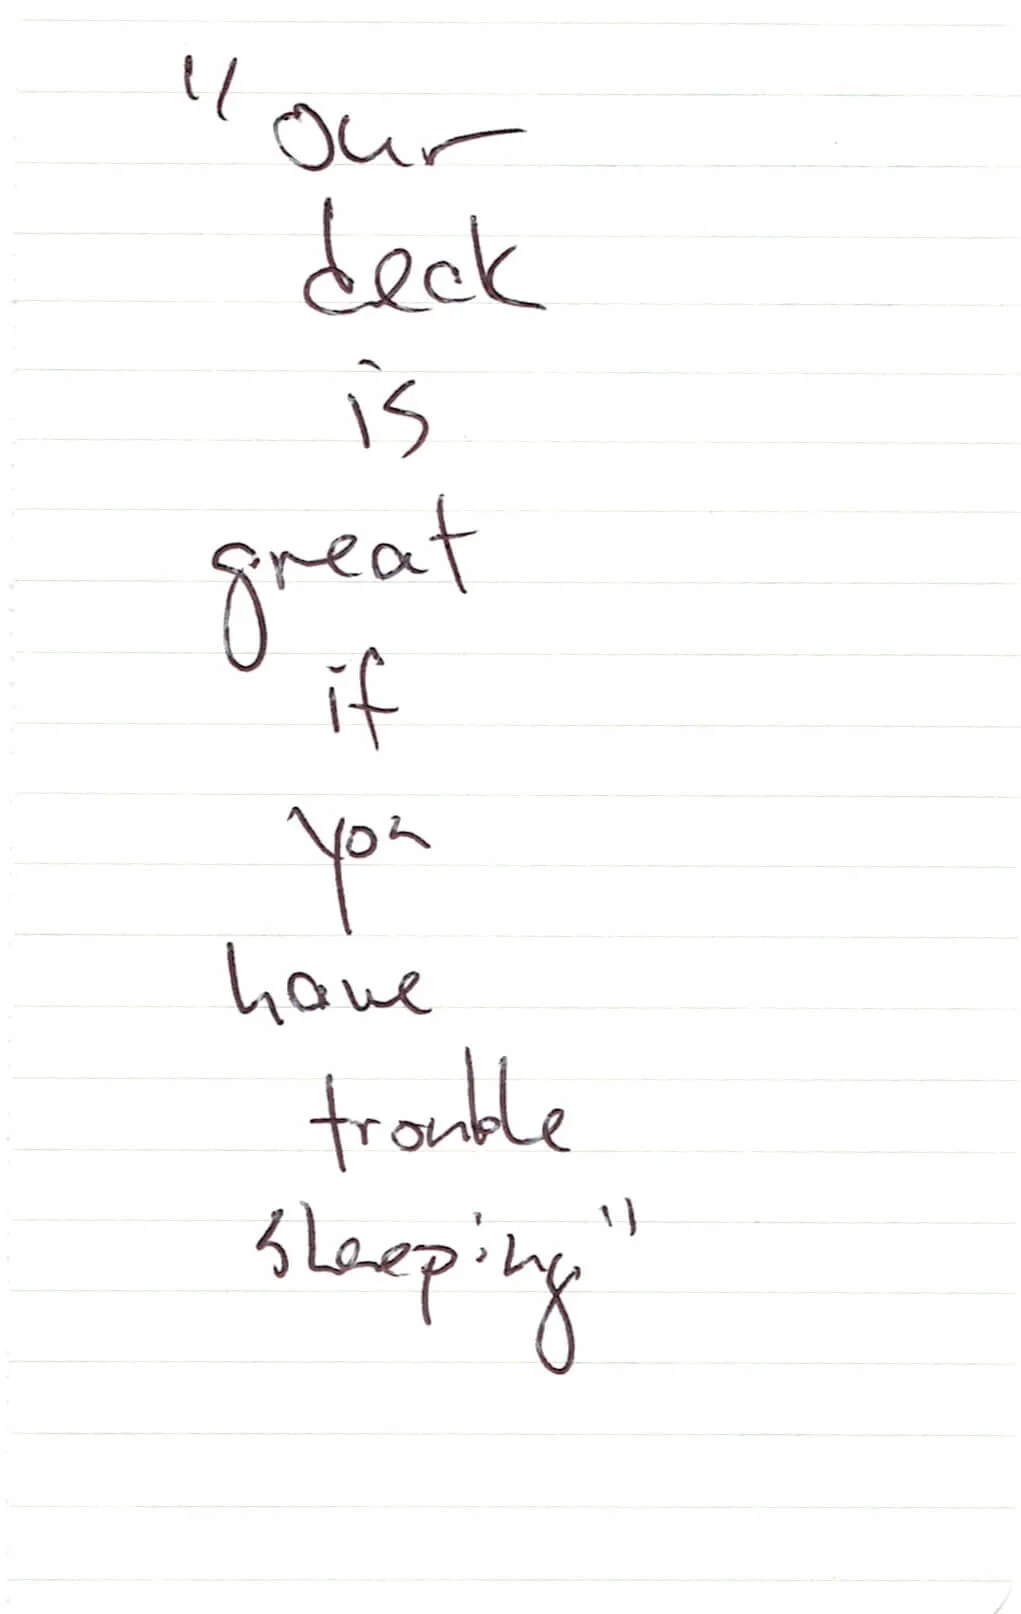 "Our
deck
is
great
if
you
have
trouble
sleeping"